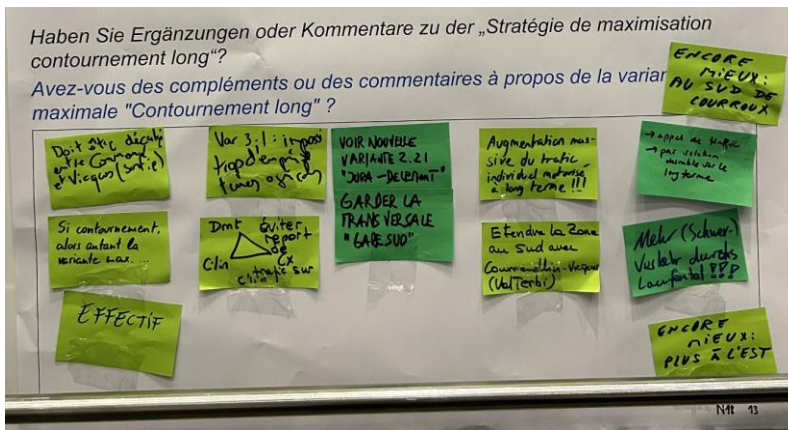 Haben Sie Ergänzungen oder Kommentare zu der „Stratégie de maximisation
contournement long“?
Avez-vous des compléments ou des commentaires à propos de la varian
maximale "Contournement long" ?
ENCORE
MIEUX:
AU SUD DE
COURROUX
Doit être
entre
et Vicques (sortie)
Var 3.1:
VOIR NOUVELLE
VARIANTE 2.21
"JURA-DELEMONT"
GARDER LA
TRANSVERSALE
"GARE SUD"
Augmentation mas-
sive du trafic
individuel motorisé
à long terme !!!
→ appel de trafic
→ pas solution
durable sur le
long terme
Si contournement,
alors autant la
variante max. ...
Dmt éviter
report
de
Clin Cx
trafic sur
Etendre la Zone
au Sud avec
Vicques
(Val Terbi)
Mehr (Schwer-)
Verkehr durchs
Laufental !!!
EFFECTIF
ENCORE
MIEUX:
PLUS À L'EST
N18 13